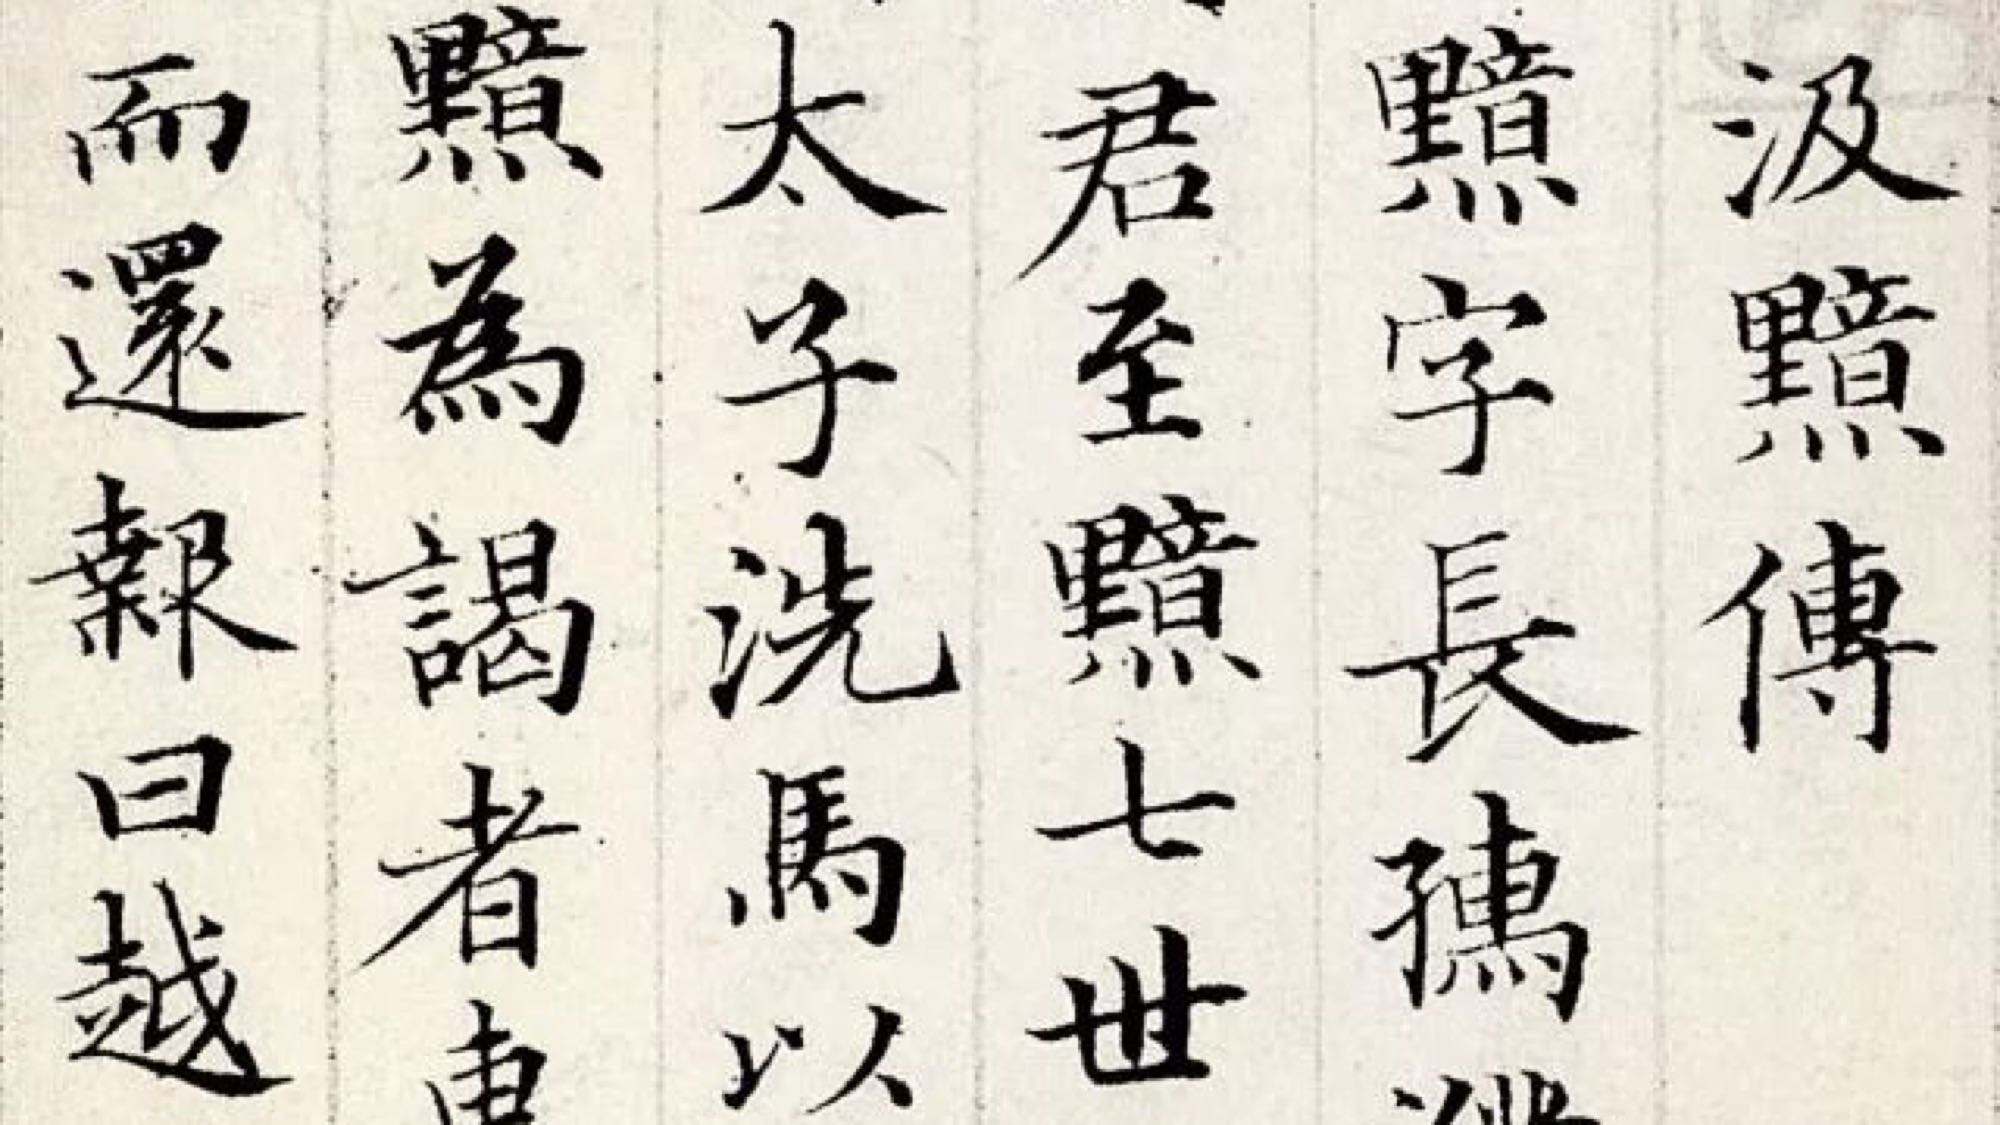 汲黯傳
黯字長孺
君至黯七世
太子洗馬以
黯為謁者東
而還報曰越